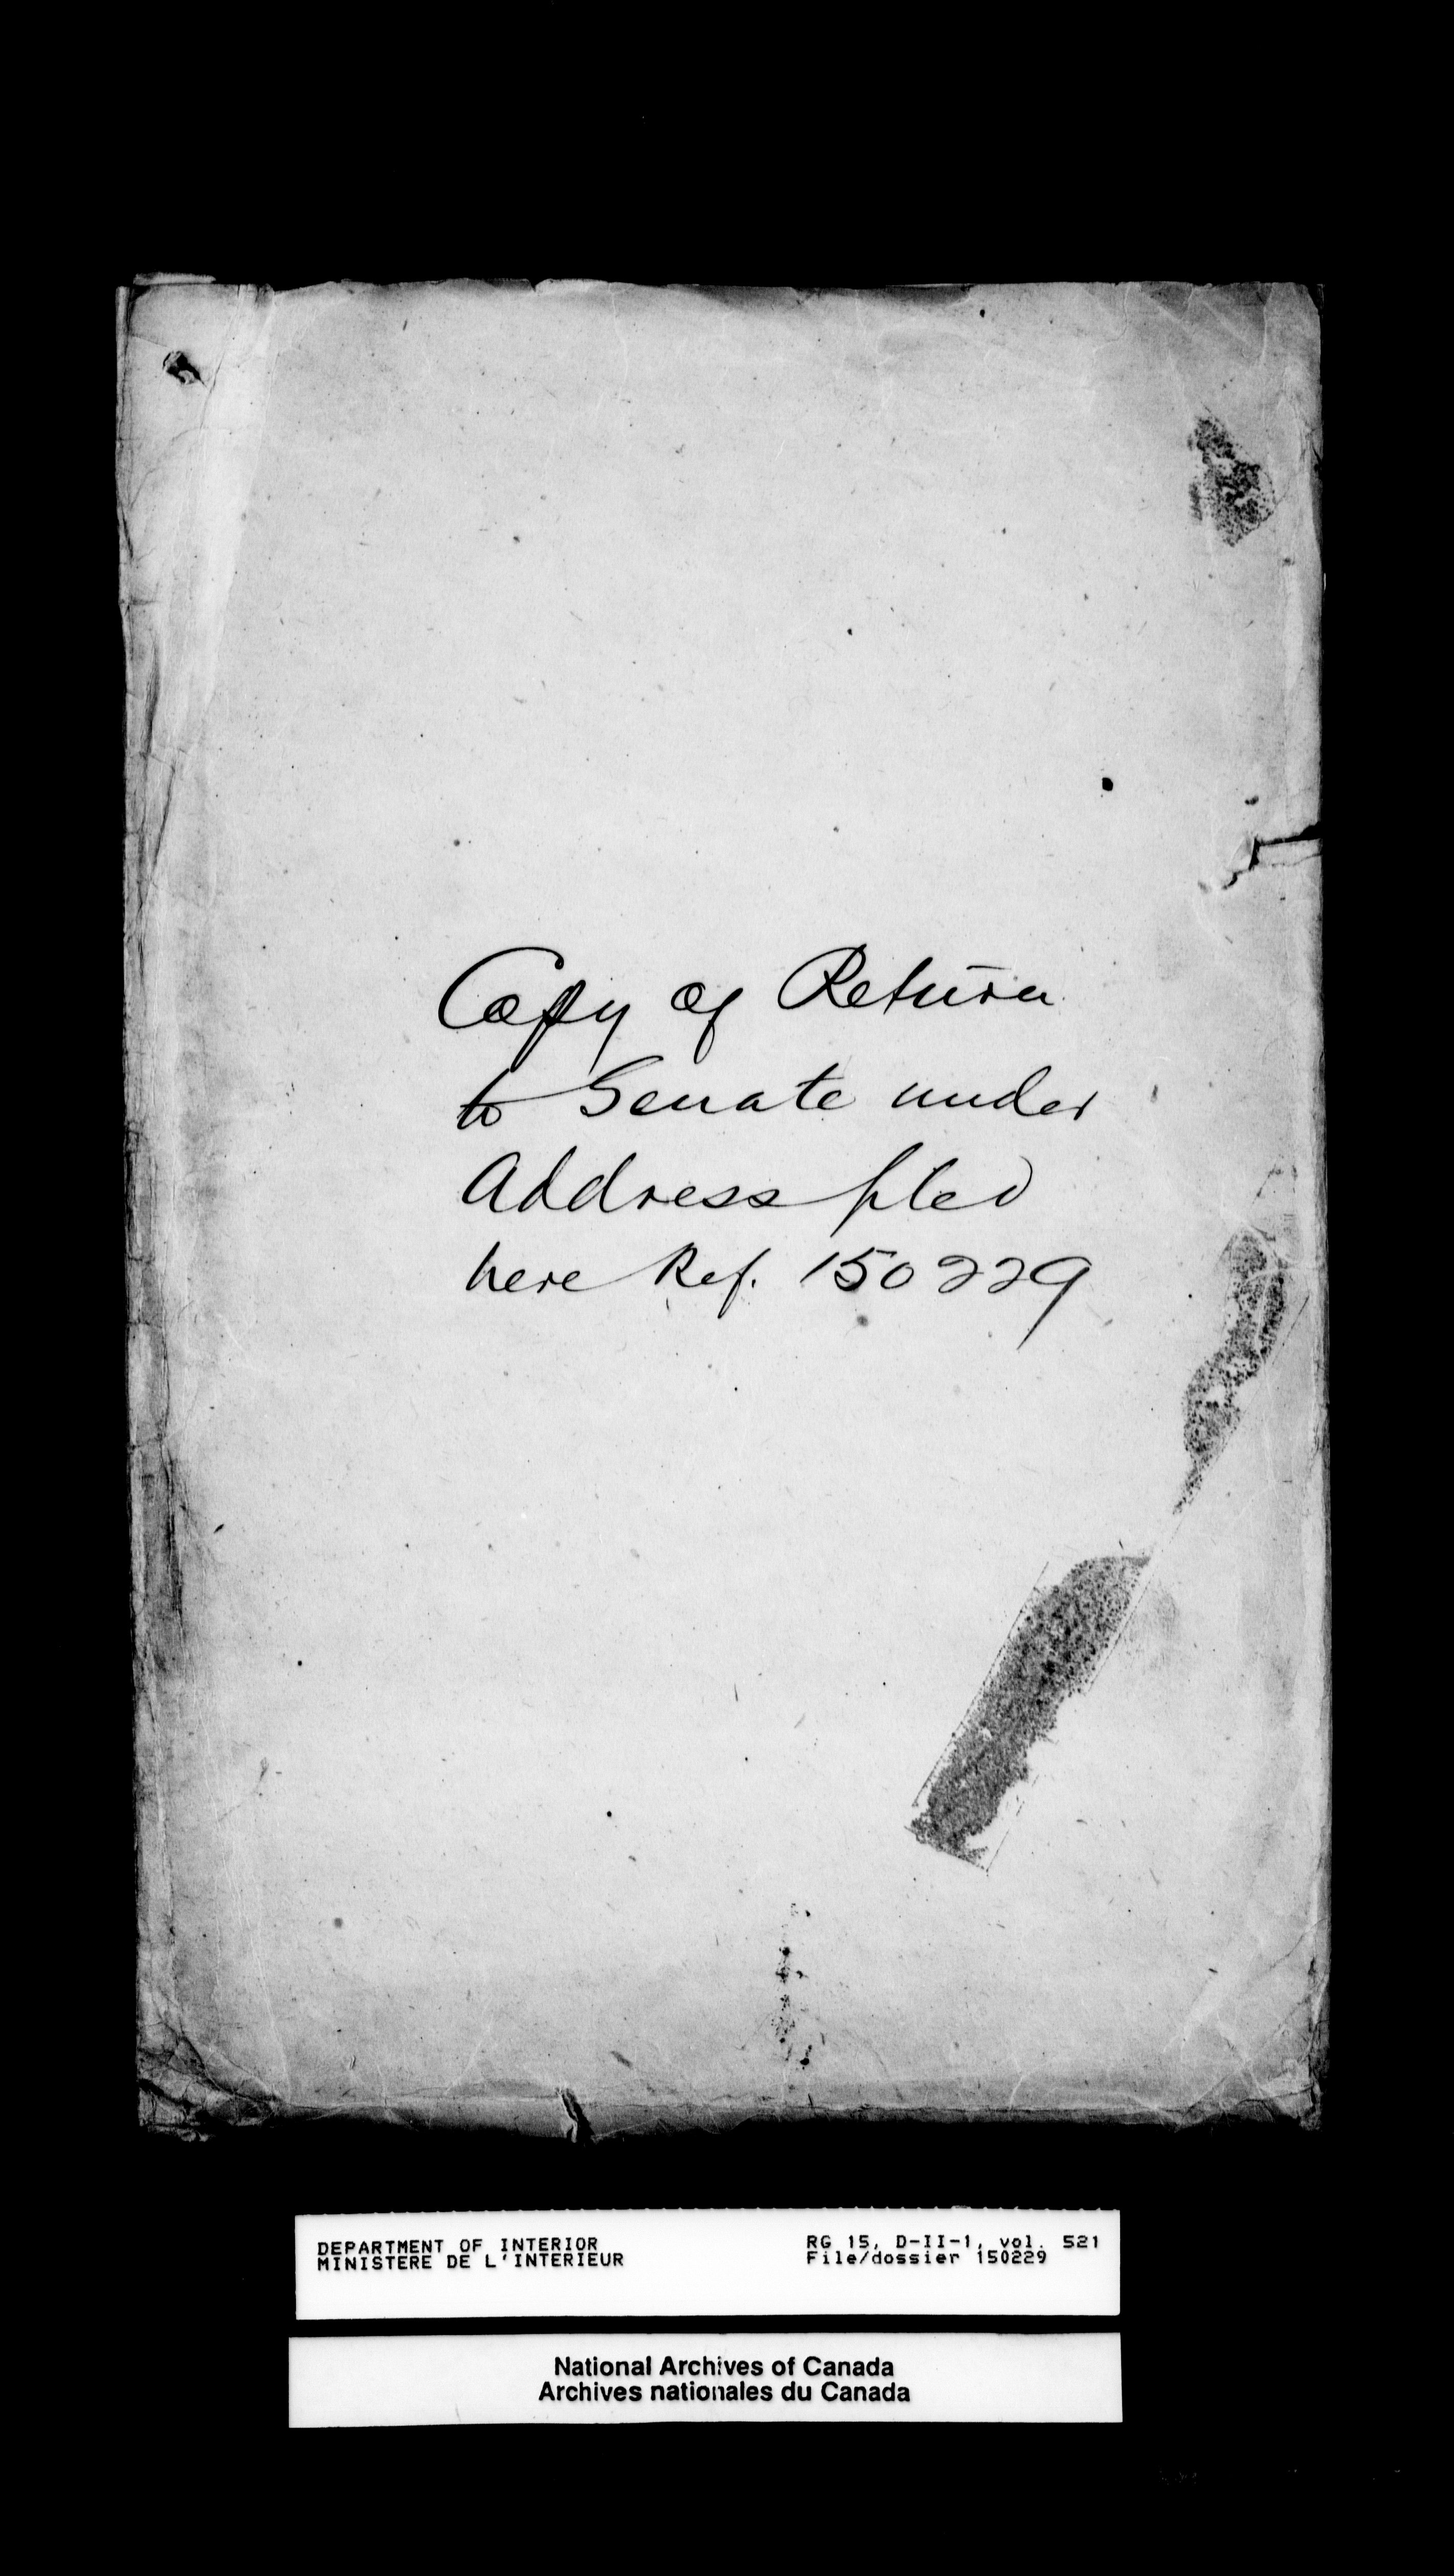 Copy of Return
to Senate under
Address filed
here Ref. 150229
DEPARTMENT OF INTERIOR
MINISTERE DE L'INTERIEUR
RG 15, D-II-1, vol. 521
File/dossier 150229
National Archives of Canada
Archives nationales du Canada